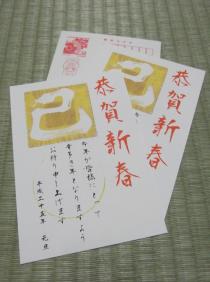 恭賀新春
巳
今年が皆様にとって
幸多き年となりますよう
お祈り申し上げます
平成二十五年 元旦
恭賀新春